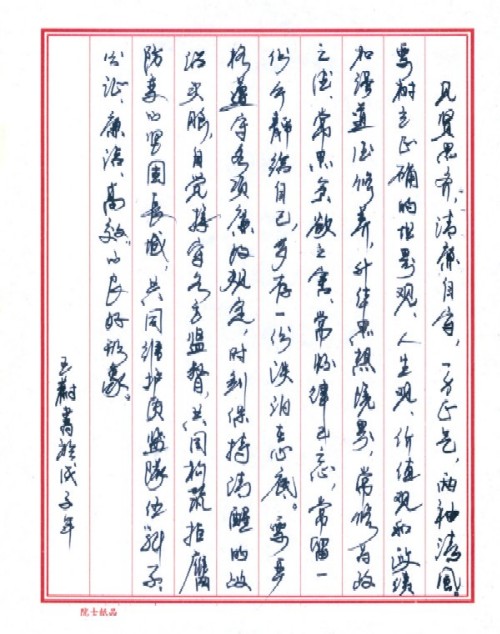 见贤思齐，清廉自守，一身正气，两袖清风。
要树立正确的世界观、人生观、价值观和政绩
加强道德修养，升华思想境界，常修为政
之德、常思贪欲之害、常怀律己之心，常留一
份宁静给自己，多存一份淡泊在心底。要严
格遵守各项廉政规定，时刻保持清醒的政
治头脑，自觉接受各方监督，共同构筑拒腐
防变的坚固长城，共同维护质监队伍
公正、廉洁、高效”的良好形象。
书於戊子年
院士纸品